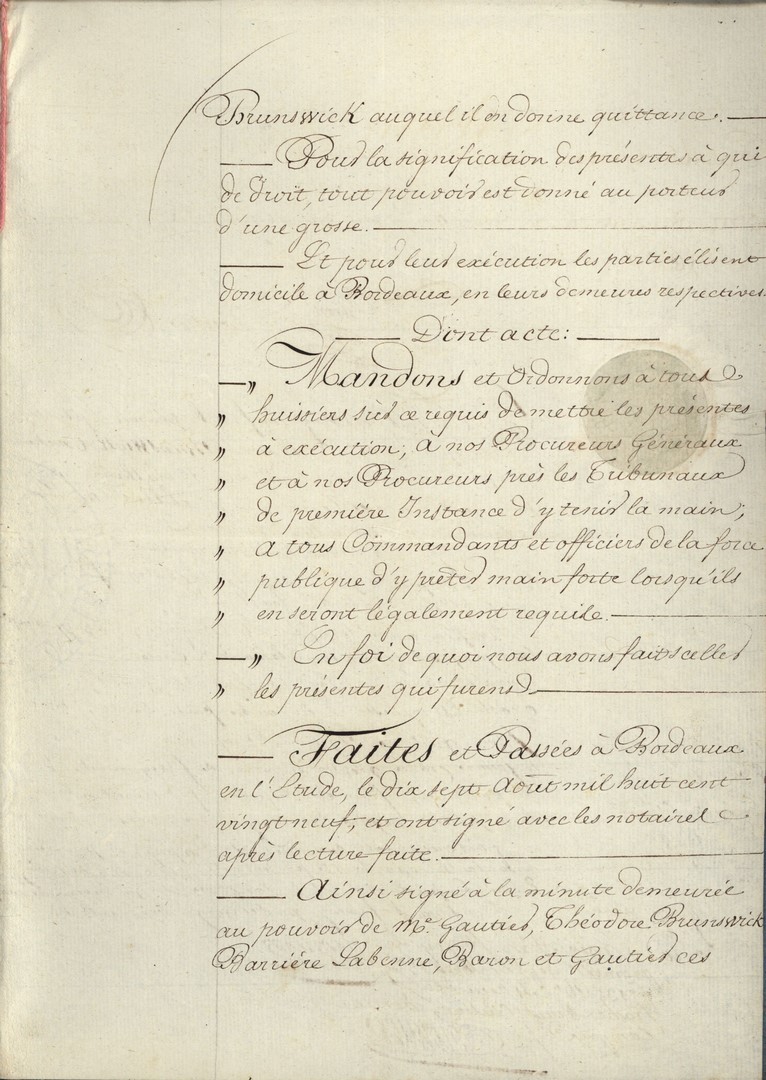 Brunswick auquel il en donne quittance. —
— Pour la signification des présentes à qui
de droit, tout pouvoir est donné au porteur
d'une grosse. —
— Et pour leur exécution les parties élisent
domicile à Bordeaux, en leurs demeures respectives.
— Dont acte: —
— „ Mandons et Ordonnons à tous
„ huissiers sur ce requis de mettre les présentes
„ à exécution, à nos Procureurs Généraux
„ et à nos Procureurs près les Tribunaux
„ de première Instance d'y tenir la main;
„ a tous Commandants et officiers de la force
„ publique d'y prêter main forte lorsqu'ils
„ en seront légalement requis. —
— „ En foi de quoi nous avons fait sceller
„ les présentes qui furent —
— Faites et Passées à Bordeaux
en l'Etude, le dix sept Août mil huit cent
vingt neuf, et ont signé avec les notaires
après lecture faite. —
— Ainsi signé à la minute demeurée
au pouvoir de Me. Gautier, Théodore Brunswick
Barrière Labenne, Baron et Gautier ces